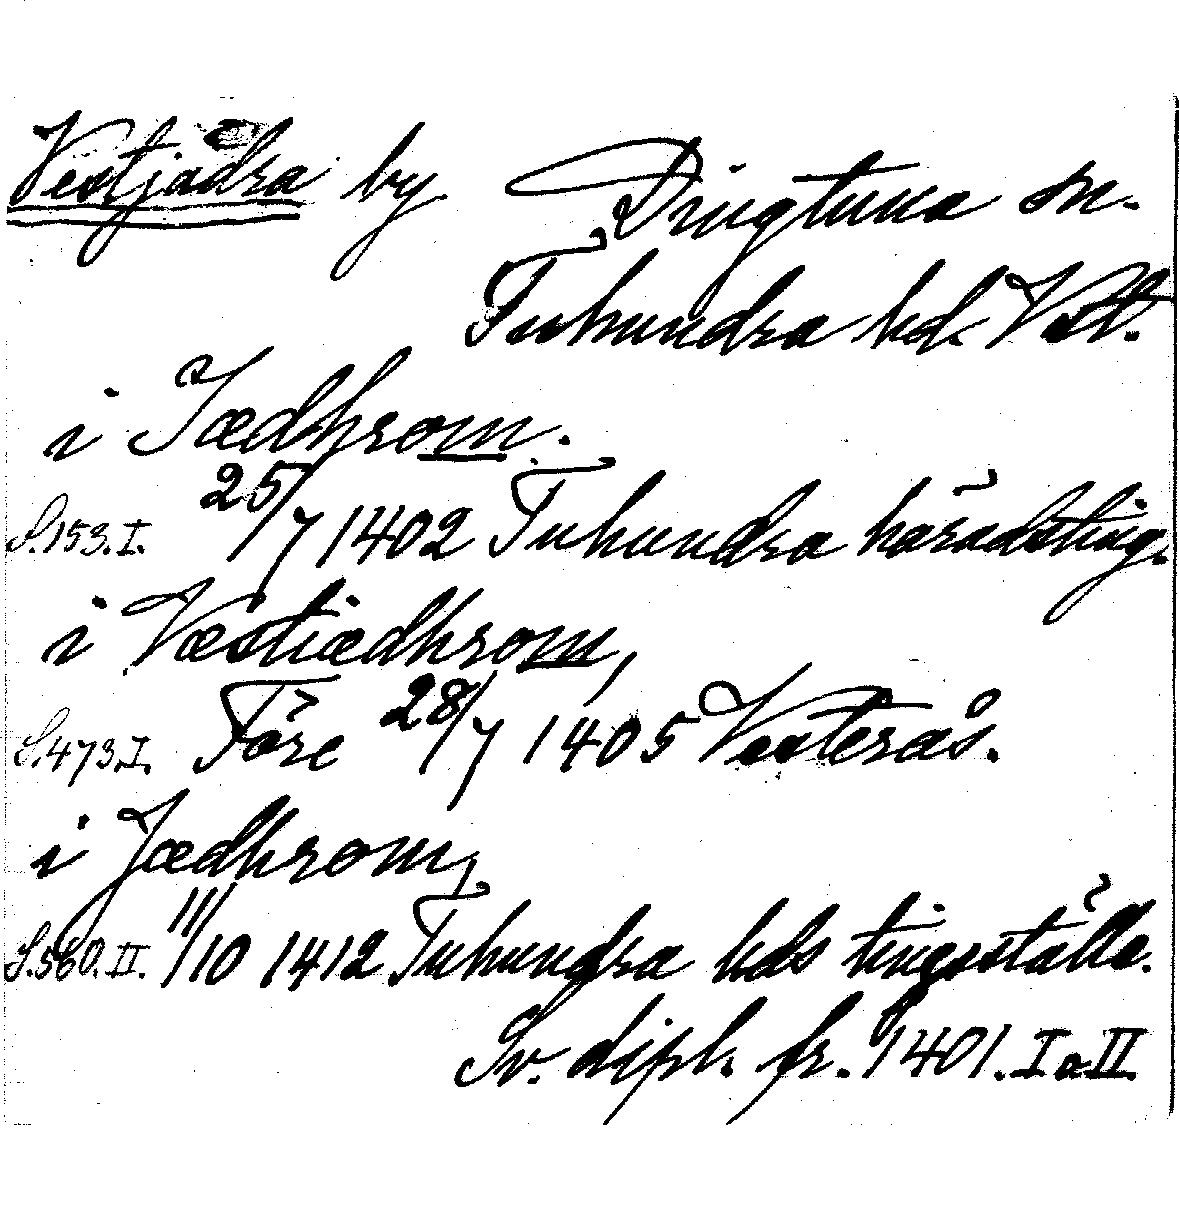 Vestjädra by Dingtuna sn.
Tuhundra hd. Vstl.
i Jædhrom.
S.153.I. 25/7 1402 Tuhundra häradsting.
i Væstiædhrom,
S.473.I. Före 28/7 1405 Vesterås.
i Jædhrom,
S.560.II. 11/10 1412 Tuhundra hds tingsställe.
Sv. dipl. fr. 1401. I o II.